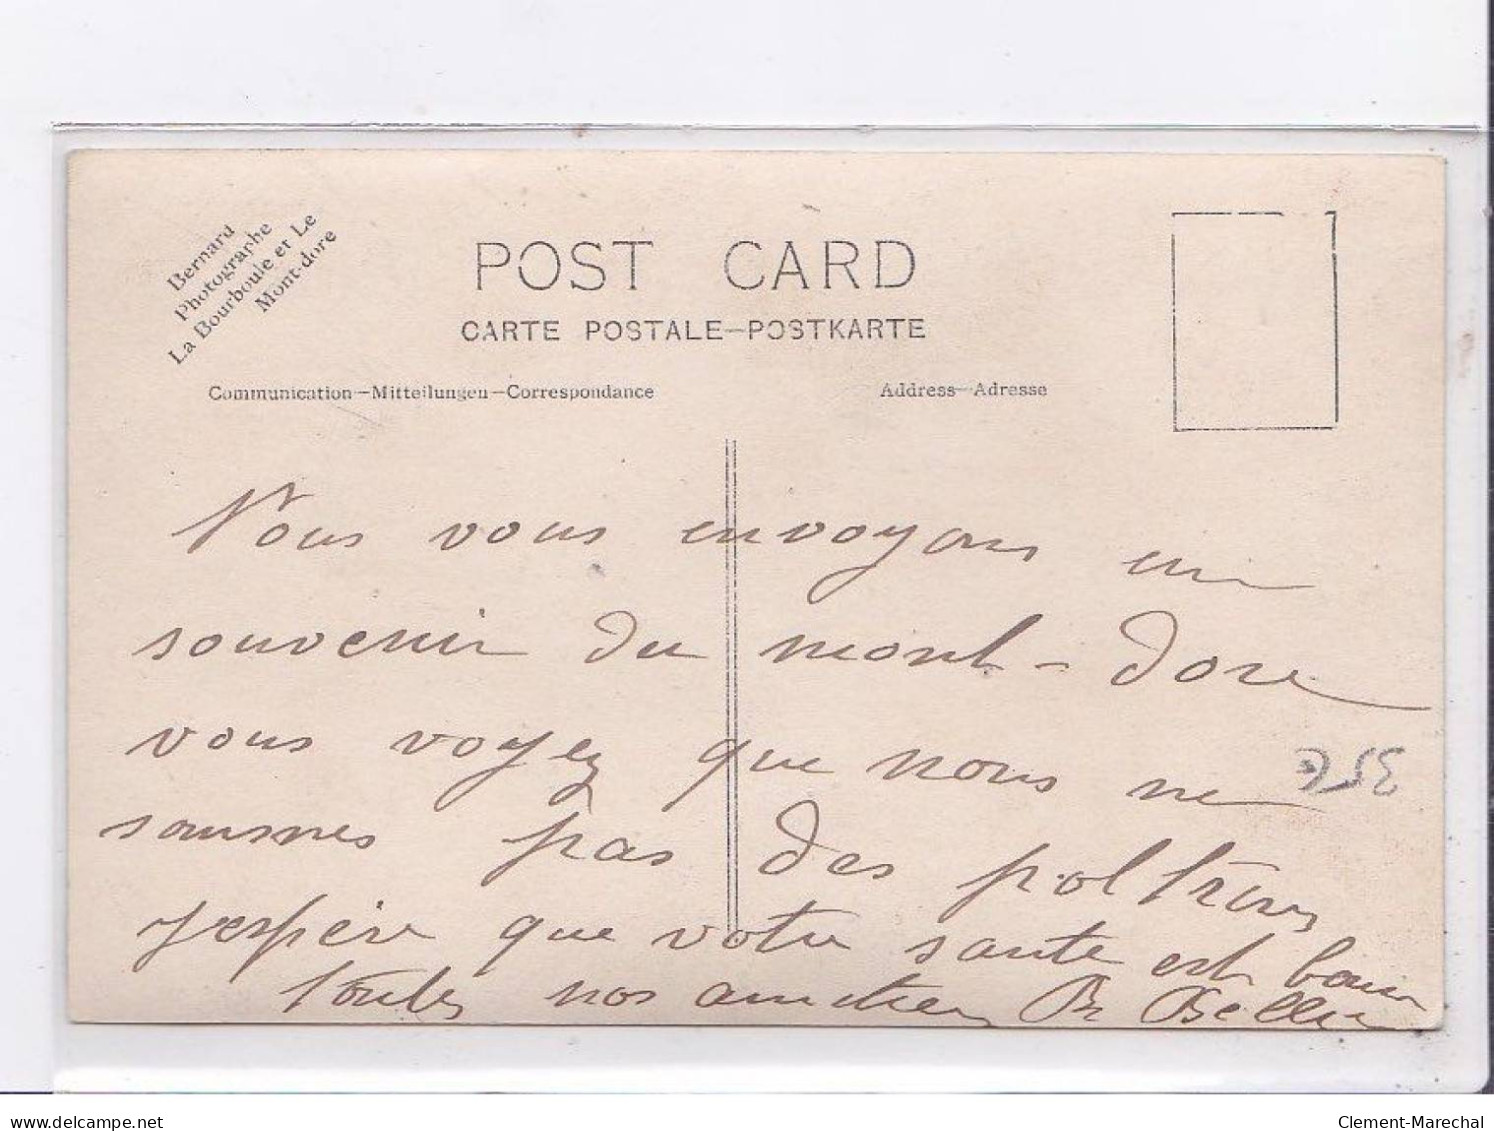 Bernard
Photographe
La Bourboule et Le
Mont-dore
POST CARD
CARTE POSTALE—POSTKARTE
Communication—Mitteilungen—Correspondance
Address—Adresse
Nous vous envoyons un
souvenir du mont-dore
vous voyez que nous ne
sommes pas des poltrons
J'espère que votre sante est bonne
toutes nos amities
delcampe.net
Clement-Marechal